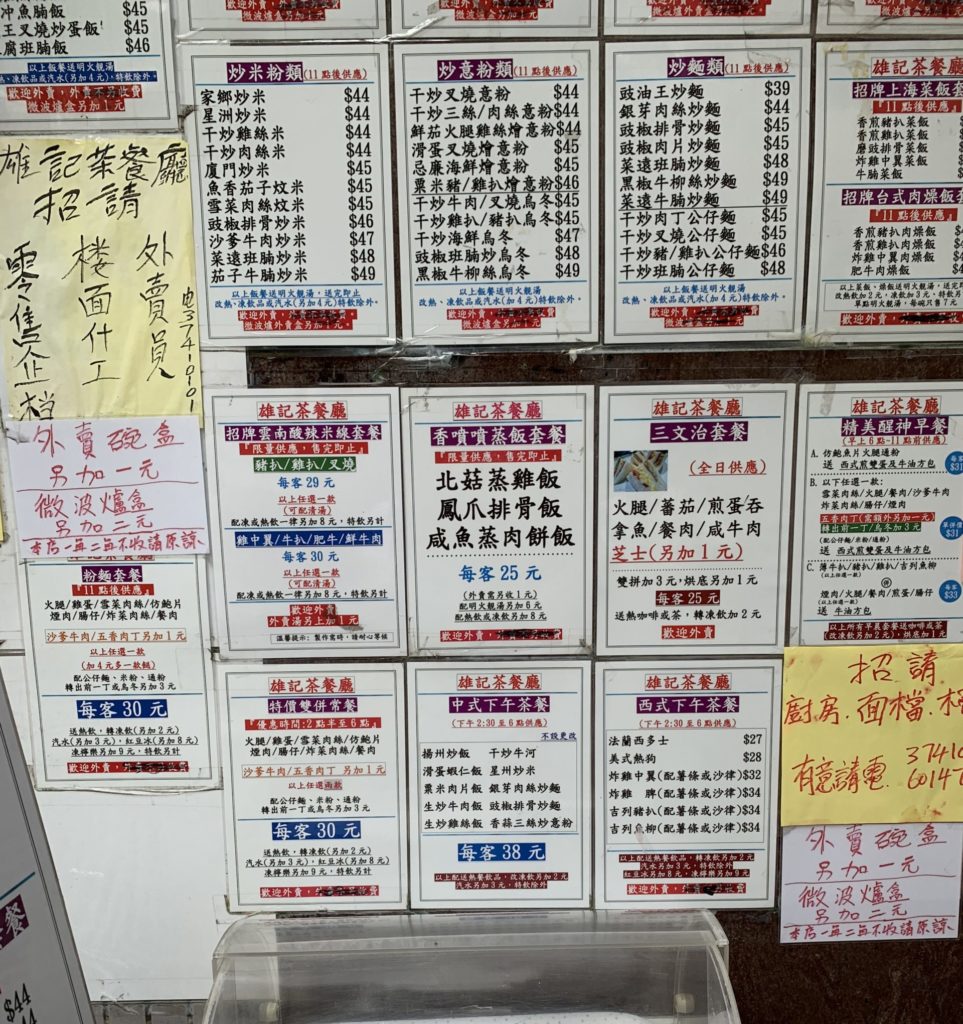 歡迎外賣
微波爐盒另加1元
冲魚腩飯 $45
王叉燒炒蛋飯 $45
腐班腩飯 $46
以上飯餐送明火靚湯
凍飲品或汽水(另加4元),特飲除外
歡迎外賣
微波爐盒另加一元
炒米粉類(11點後供應)
家鄉炒米 $44
星洲炒米 $44
干炒雞絲米 $44
干炒肉絲米 $44
廈門炒米 $45
魚香茄子炆米 $45
雪菜肉絲炆米 $45
豉椒排骨炒米 $46
沙爹牛肉炒米 $47
菜遠班腩炒米 $48
茄子牛腩炒米 $49
以上飯餐送明火靚湯,送完即止
改熱、凍飲品或汽水(另加4元)特飲除外。
歡迎外賣
微波爐外賣盒另加1元
炒意粉類(11點後供應)
干炒叉燒意粉 $44
干炒三絲/肉絲意粉 $44
鮮茄火腿雞絲燴意粉 $44
滑蛋叉燒燴意粉 $45
忌廉海鮮燴意粉 $45
粟米豬/雞扒燴意粉 $46
干炒牛肉/叉燒烏冬 $45
干炒雞扒/豬扒烏冬 $45
干炒海鮮烏冬 $47
豉椒班腩炒烏冬 $48
黑椒牛柳絲烏冬 $49
以上飯餐送明火靚湯,送完即止
改熱、凍飲品或汽水(另加4元)特飲除外。
歡迎外賣
微波爐外賣盒另加1元
炒麵類(11點後供應)
豉油王炒麵 $39
銀芽肉絲炒麵 $44
豉椒排骨炒麵 $45
豉椒肉片炒麵 $45
菜遠班腩炒麵 $48
黑椒牛柳絲炒麵 $49
菜遠牛腩炒麵 $49
干炒肉丁公仔麵 $45
干炒叉燒公仔麵 $45
干炒豬/雞扒公仔麵 $46
干炒班腩公仔麵 $48
以上飯餐送明火靚湯,送完即止
改熱、凍飲品或汽水(另加4元)特飲除外。
歡迎外賣
微波爐外賣盒另加1元
雄記茶餐廳
招牌上海菜飯套
『11點後供應』
香煎豬扒菜飯
香煎雞扒菜飯
磨豉排骨菜飯
炸雞中翼菜飯
牛腩菜飯
招牌台式肉燥飯套
『11點後供應』
香煎豬扒肉燥飯
香煎雞扒肉燥飯
炸雞中翼肉燥飯
肥牛肉燥飯
歡迎外賣
雄記茶餐廳
招請
外賣員
楼面什工
零售企档
电3741-0101
外賣碗盒
另加一元
微波爐盒
另加二元
本店一每二每不收請原諒、
粉麵套餐
『11點後供應』
火腿/雞蛋/雪菜肉絲/仿鮑片
煙肉/腸仔/炸菜肉絲/餐肉
沙爹牛肉/五香肉丁另加1元
以上任選一款
(加4元多一款餸)
配公仔麵、米粉、通粉
轉出前一丁或烏冬另加3元
每客 30 元
送熱飲,轉凍飲(加2元)
汽水(另加3元),紅豆冰(另加8元)
凍檸樂另加9元,特飲另計
歡迎外賣
雄記茶餐廳
招牌雲南酸辣米線套餐
『限量供應,售完即止』
豬扒/雞扒/叉燒
每客 29 元
以上任選一款
(可配清湯)
配凍或熱飲一律另加8元,特飲另計
雞中翼/牛扒/肥牛/鮮牛肉
每客 30 元
以上任選一款
(可配清湯)
配凍或熱飲一律另加8元,特飲另計
歡迎外賣
外賣湯另上加1元
溫馨提示:製作需時,請耐心等候
雄記茶餐廳
香噴噴蒸飯套餐
『限量供應,售完即止』
北菇蒸雞飯
鳳爪排骨飯
咸魚蒸肉餅飯
每客 25 元
(外賣需另收1元)
配明火靚湯另加6元
配熱飲或凍飲另加8元
歡迎外賣
雄記茶餐廳
三文治套餐
(全日供應)
火腿/蕃茄/煎蛋/吞
拿魚/餐肉/咸牛肉
芝士(另加1元)
雙拼加3元,烘底另加1元
每客 25 元
送熱咖啡或茶,轉凍飲加2元
歡迎外賣
雄記茶餐廳
精美醒神早餐
(早上6點-11點前供應)
A. 仿鮑魚片火腿通粉
送 西式煎雙蛋及牛油方包
每客 $31
B. 以下任選一款:
雪菜肉絲/火腿/餐肉/沙爹牛肉
炸菜肉絲/腸仔/煙肉
五香肉丁(需額外另加一元)
轉出前一丁/烏冬加3元
(配公仔麵/米粉/通粉)
送 西式煎雙蛋及牛油方包
$31
C. 薄牛扒/豬扒/雞扒/吉列魚柳
(以上任選一款)
煙肉/火腿/餐肉/煎蛋/腸仔
(以上任選一款)
送 牛油方包
每客 $33
以上所有早晨套餐送咖啡或茶
(改凍飲另加2元),烘底加1元
雄記茶餐廳
特價雙併常餐
『優惠時間:2點半至6點』
火腿/雞蛋/雪菜肉絲/仿鮑片
煙肉/腸仔/炸菜肉絲/餐肉
沙爹牛肉/五香肉丁 另加1元
以上任選兩款
配公仔麵、米粉、通粉
轉出前一丁或烏冬另加3元
每客 30 元
送熱飲,轉凍飲(加2元)
汽水(另加3元),紅豆冰(另加8元)
凍檸樂另加9元,特飲另計
歡迎外賣
雄記茶餐廳
中式下午茶餐
(下午2:30至6點供應)
不設更改
揚州炒飯 干炒牛河
滑蛋蝦仁飯 星州炒米
粟米肉片飯 銀芽肉絲炒麵
生炒牛肉飯 豉椒排骨炒麵
生炒雞絲飯 香蒜三絲炒意粉
每客 38 元
以上配送熱餐飲,改凍飲另加2元
汽水另加3元,特飲另計
雄記茶餐廳
西式下午茶餐
(下午2:30至6點供應)
法蘭西多士 $27
美式熱狗 $28
炸雞中翼(配薯條或沙律) $32
炸雞髀(配薯條或沙律) $34
吉列豬扒(配薯條或沙律) $34
吉列魚柳(配薯條或沙律) $34
以上配送熱餐飲品,轉凍飲另加2元
汽水另加3元
紅豆冰另加8元,凍檸樂另加9元
歡迎外賣
招請
廚房.面檔.
有意請電 37410
60147
外賣碗盒
另加一元
微波爐盒
另加二元
本店一每二每不收請原諒、
餐
$44